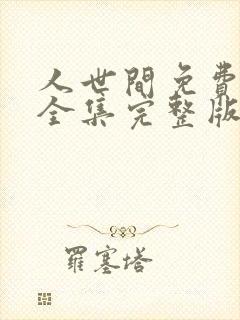 人世間免費
全集完整版
羅塞塔